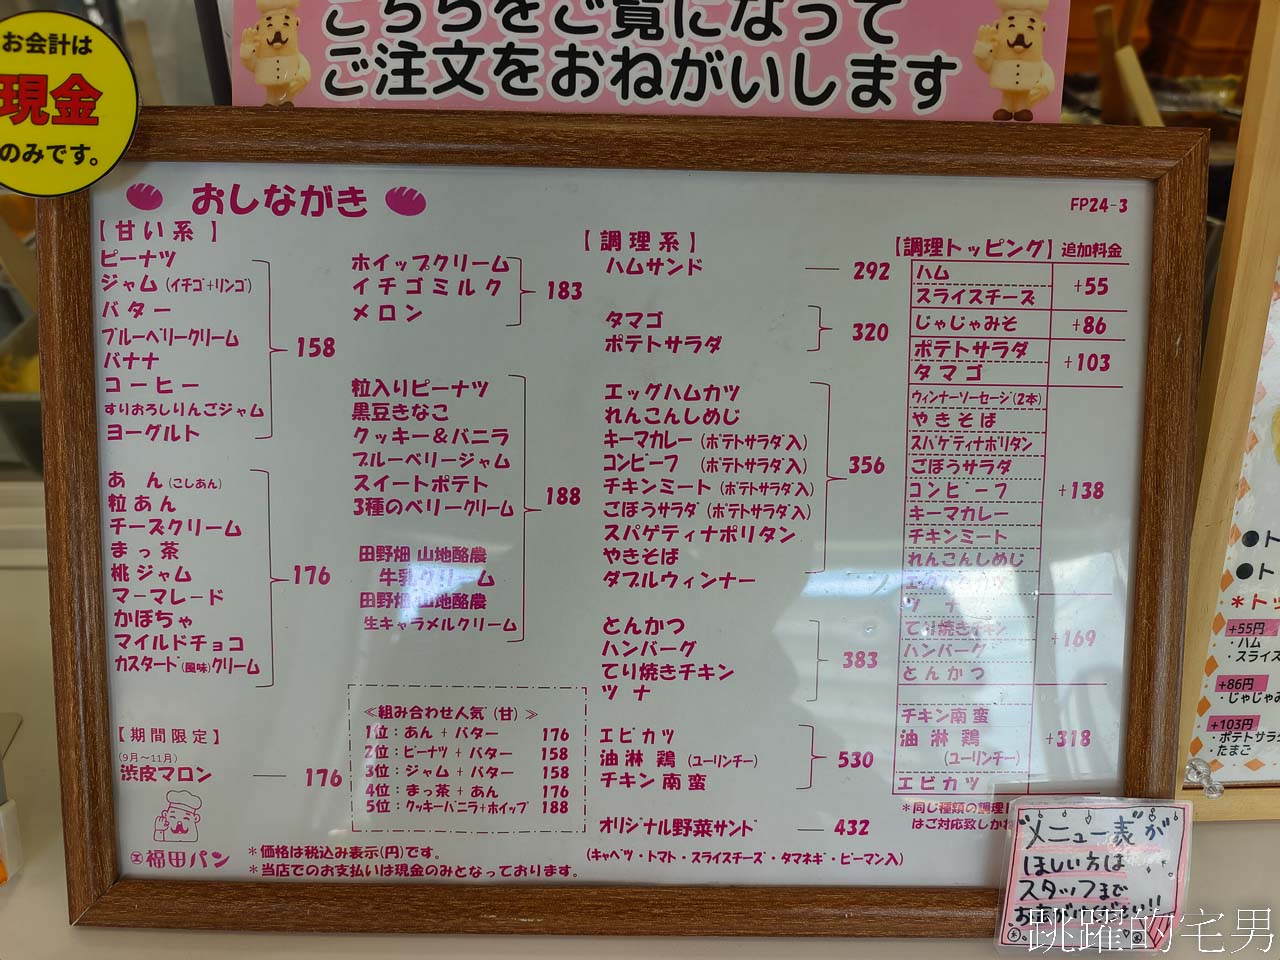 こちらをご覧になって
ご注文をおねがいします
お会計は
現金
のみです。
おしながき
FP24-3
【甘い系】
ピーナツ
ジャム(イチゴ+リンゴ)
バター
ブルーベリークリーム
バナナ
コーヒー
すりおろしりんごジャム
ヨーグルト
158
あん(こしあん)
粒あん
チーズクリーム
まっ茶
桃ジャム
マーマレード
かぼちゃ
マイルドチョコ
カスタード(風味)クリーム
176
【期間限定】
(9月～11月)
渋皮マロン
176
㋓福田パン
ホイップクリーム
イチゴミルク
メロン
183
粒入りピーナツ
黒豆きなこ
クッキー＆バニラ
ブルーベリージャム
スイートポテト
3種のベリークリーム
田野畑 山地酪農
牛乳クリーム
田野畑 山地酪農
生キャラメルクリーム
188
≪組み合わせ人気(甘)≫
1位：あん+バター 176
2位：ピーナツ+バター 158
3位：ジャム+バター 158
4位：まっ茶+あん 176
5位：クッキーバニラ+ホイップ 188
＊価格は税込み表示(円)です。
＊当店でのお支払いは現金のみとなっております。
【調理系】
ハムサンド 292
タマゴ
ポテトサラダ
320
エッグハムカツ
れんこんしめじ
キーマカレー(ポテトサラダ入)
コンビーフ (ポテトサラダ入)
チキンミート(ポテトサラダ入)
ごぼうサラダ(ポテトサラダ入)
スパゲティナポリタン
やきそば
ダブルウィンナー
356
とんかつ
ハンバーグ
てり焼きチキン
ツナ
383
エビカツ
油淋鶏(ユーリンチー)
チキン南蛮
530
オリジナル野菜サンド 432
(キャベツ・トマト・スライスチーズ・タマネギ・ピーマン入)
【調理トッピング】追加料金
ハム
スライスチーズ
+55
じゃじゃみそ +86
ポテトサラダ
タマゴ
+103
ウィンナーソーセージ(2本)
やきそば
スパゲティナポリタン
ごぼうサラダ
コンビーフ
キーマカレー
チキンミート
れんこんしめじ
エッグハムカツ
+138
ツナ
てり焼きチキン
ハンバーグ
とんかつ
+169
チキン南蛮
油淋鶏
(ユーリンチー)
エビカツ
+318
＊同じ種類の調理
はご対応致しかね
"メニュー表"が
ほしい方は
スタッフまで
お声がけください!!
●ト
●ト
＊トッ
+55円
・ハム
・スライス
+86円
・じゃじゃみ
+103円
・ポテトサラダ
・たまご
跳躍的宅男